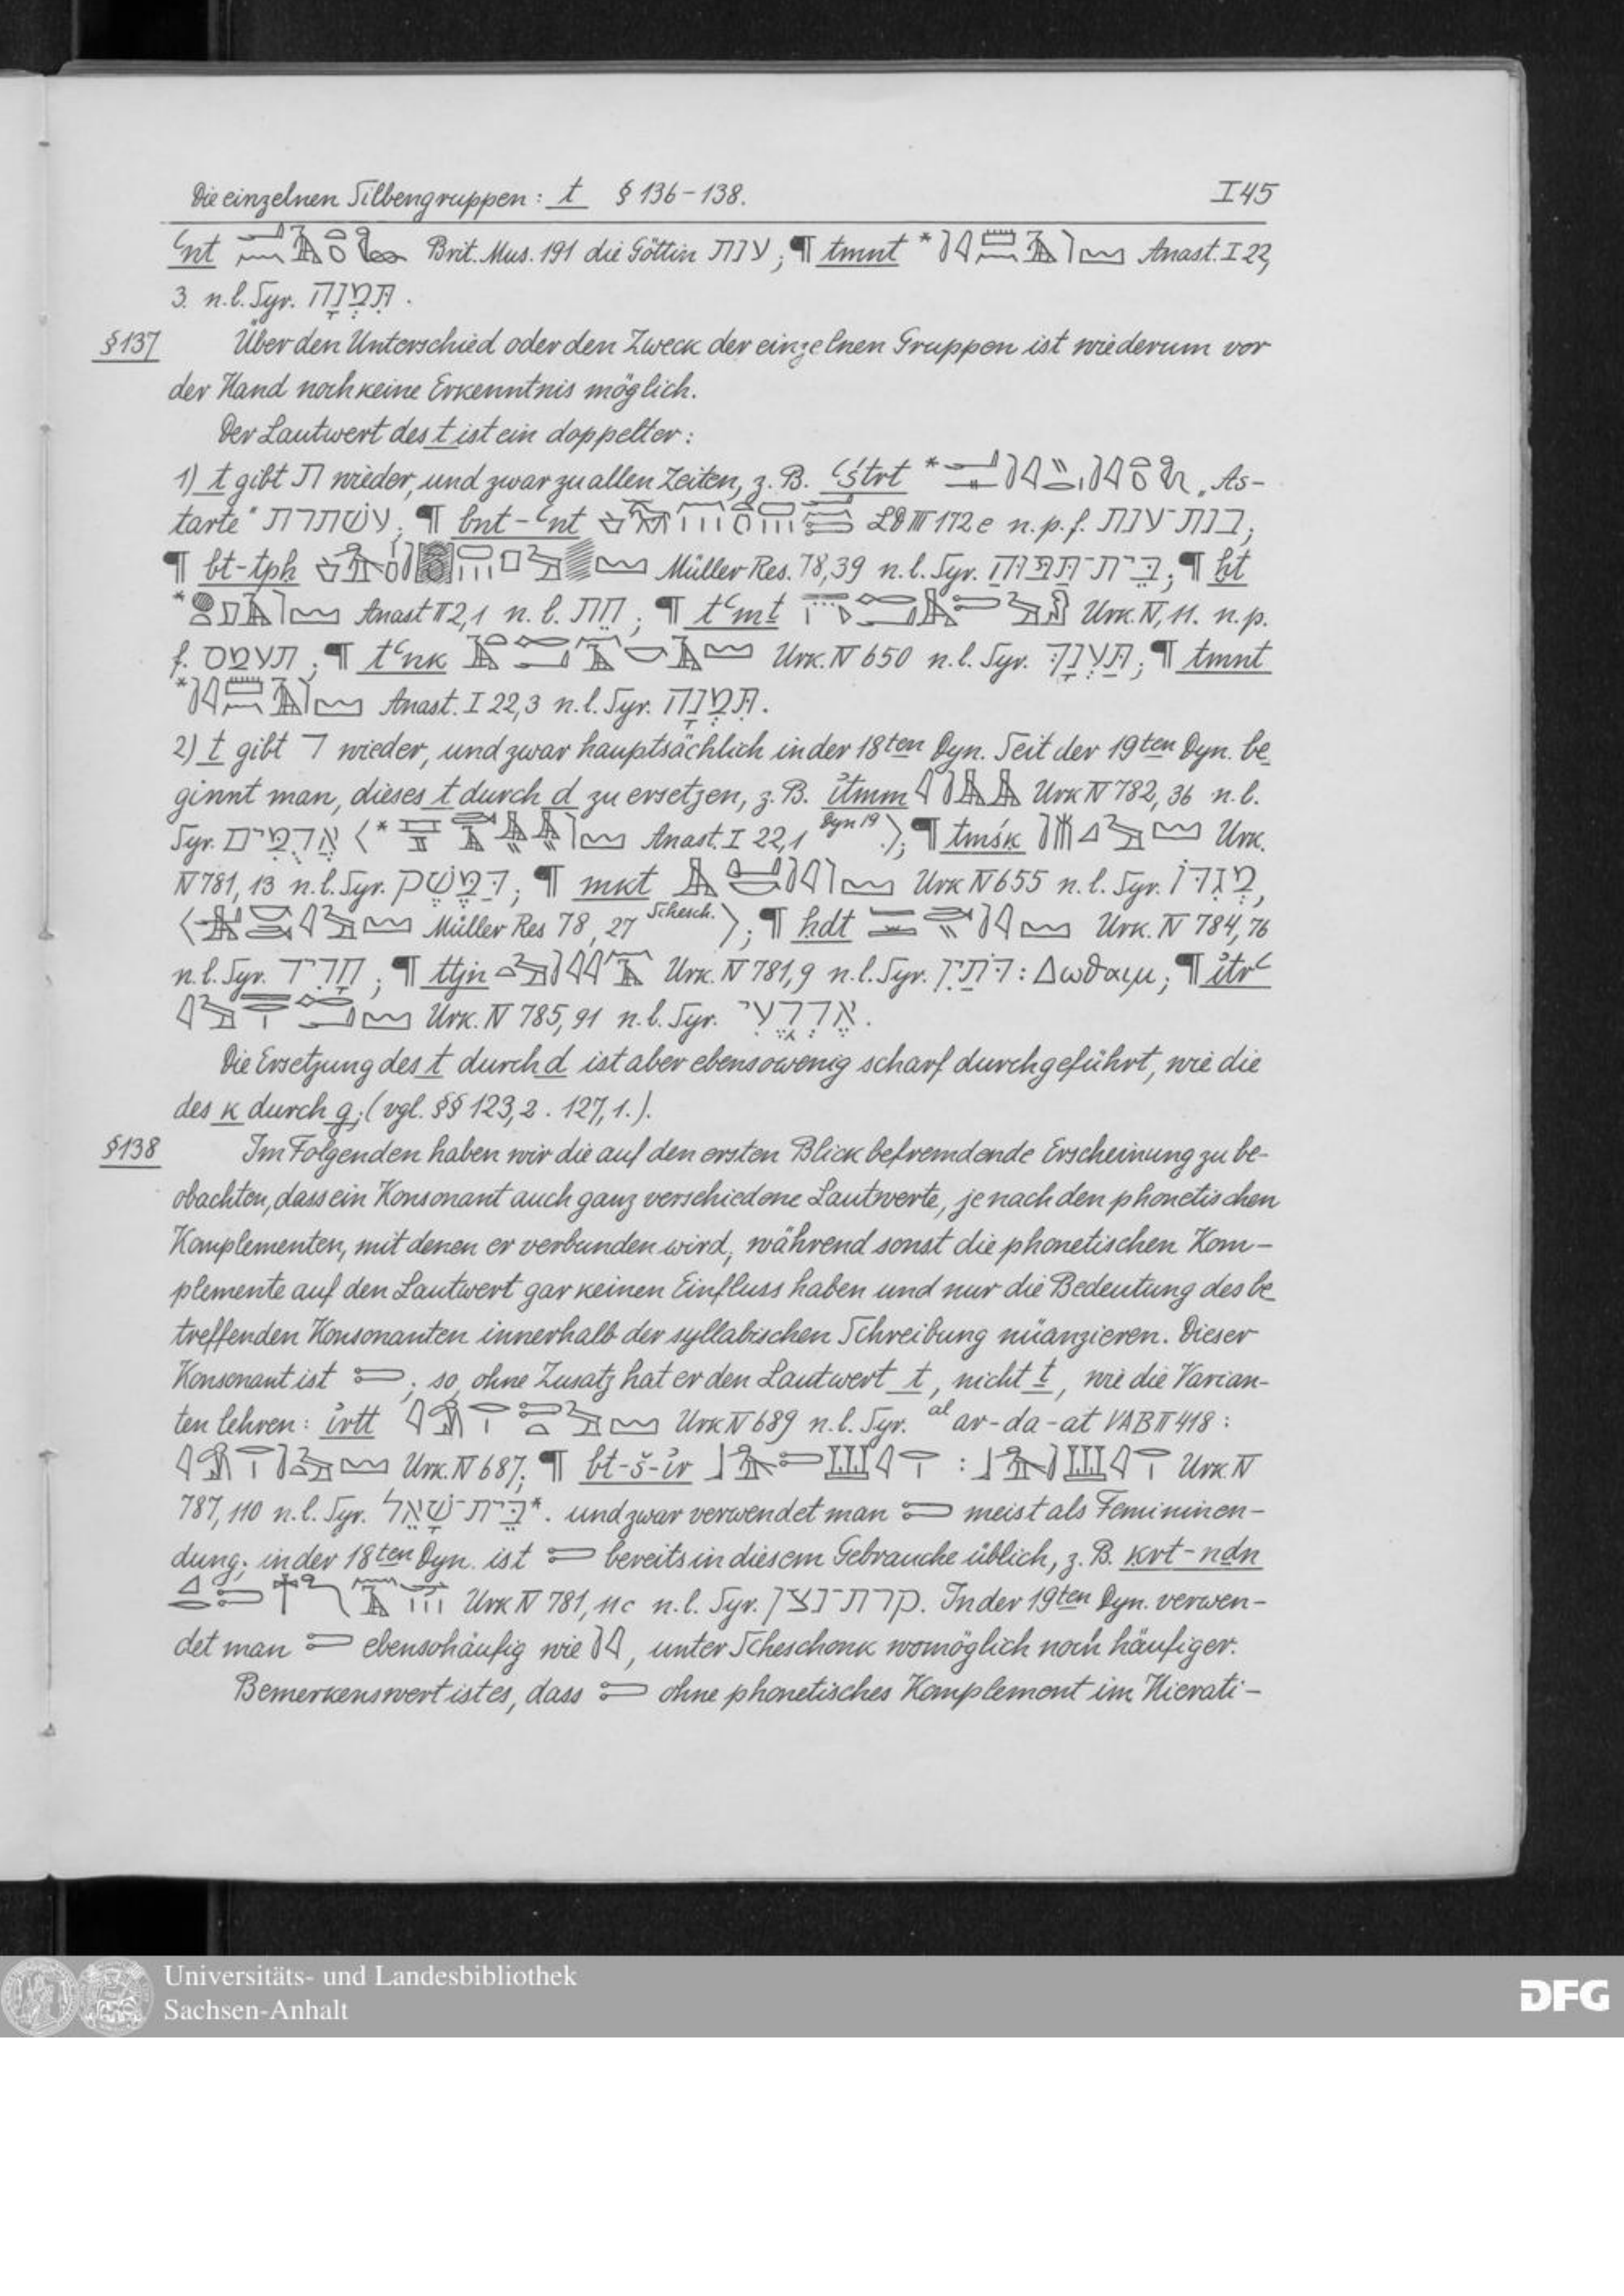 Die einzelnen Silbengruppen: t § 136-138. I 45
ꜥnt Brit. Mus. 191 die Göttin ענת; ¶ tmnt * Anast. I 22,
3. n.l. Syr. תִּמְנָה.
§137 Über den Unterschied oder den Zweck der einzelnen Gruppen ist wiederum vor
der Hand noch keine Erkenntnis möglich.
Der Lautwert des t ist ein doppelter:
1) t gibt ת wieder, und zwar zu allen Zeiten, z. B. ꜥśtrt * „As-
tarte" עשתרת; ¶ bnt-ꜥnt LD III 172 e n.p.f. בנת־ענת;
¶ bt-tpḥ Müller Res. 78,39 n.l. Syr. בֵּית־תַּפּוּחַ; ¶ ḫt
* Anast II 2,1 n.l. חֵת; ¶ tꜥmṯ Urk. IV, 11. n.p.
f. תעמס; ¶ tꜥnk Urk. IV 650 n.l. Syr. תַּעְנָךְ; ¶ tmnt
* Anast. I 22,3 n.l. Syr. תִּמְנָה.
2) t gibt ד wieder, und zwar hauptsächlich in der 18ten Dyn. Seit der 19ten Dyn. be
ginnt man, dieses t durch d zu ersetzen, z. B. i̓tmm Urk IV 782, 36 n.l.
Syr. אֲדָמִים ⟨* Anast. I 22,1 Dyn 19.⟩; ¶ tmśḳ Urk.
IV 781, 13 n.l. Syr. דַּמֶּשֶׂק; ¶ mkt Urk IV 655 n.l. Syr. מְגִדּוֹ,
⟨ Müller Res 78, 27 Schesch. ⟩; ¶ ḥdt Urk. IV 784, 76
n.l. Syr. חָדִיד; ¶ ttjn Urk. IV 781,9 n.l. Syr. דֹּתַיִן: Δωθαιμ; ¶ i̓trꜥ
Urk. IV 785, 91 n.l. Syr. אֶדְרֶעִי.
Die Ersetzung des t durch d ist aber ebensowenig scharf durchgeführt, wie die
des k durch g; (vgl. §§ 123,2. 127,1.).
§138 Im Folgenden haben wir die auf den ersten Blick befremdende Erscheinung zu be-
obachten, dass ein Konsonant auch ganz verschiedene Lautwerte, je nach den phonetischen
Komplementen, mit denen er verbunden wird, während sonst die phonetischen Kom-
plemente auf den Lautwert gar keinen Einfluss haben und nur die Bedeutung des be
treffenden Konsonanten innerhalb der syllabischen Schreibung nüanzieren. Dieser
Konsonant ist ; so, ohne Zusatz hat er den Lautwert t, nicht ṯ, wie die Varian-
ten lehren: i̓rtt Urk IV 689 n.l. Syr. al ar-da-at VAB II 418:
Urk. IV 687; ¶ bt-š-i̓r : Urk IV
787, 110 n.l. Syr. בֵּית־שָׁאֵל*. und zwar verwendet man meist als Femininen-
dung; in der 18ten Dyn. ist bereits in diesem Gebrauche üblich, z. B. ḳrt-nḏn
Urk IV 781, 11c n.l. Syr. קרת־נצן. In der 19ten Dyn. verwen-
det man ebensohäufig wie , unter Scheschonk womöglich noch häufiger.
Bemerkenswert ist es, dass ohne phonetisches Komplement im Hierati-
Universitäts- und Landesbibliothek
Sachsen-Anhalt
DFG